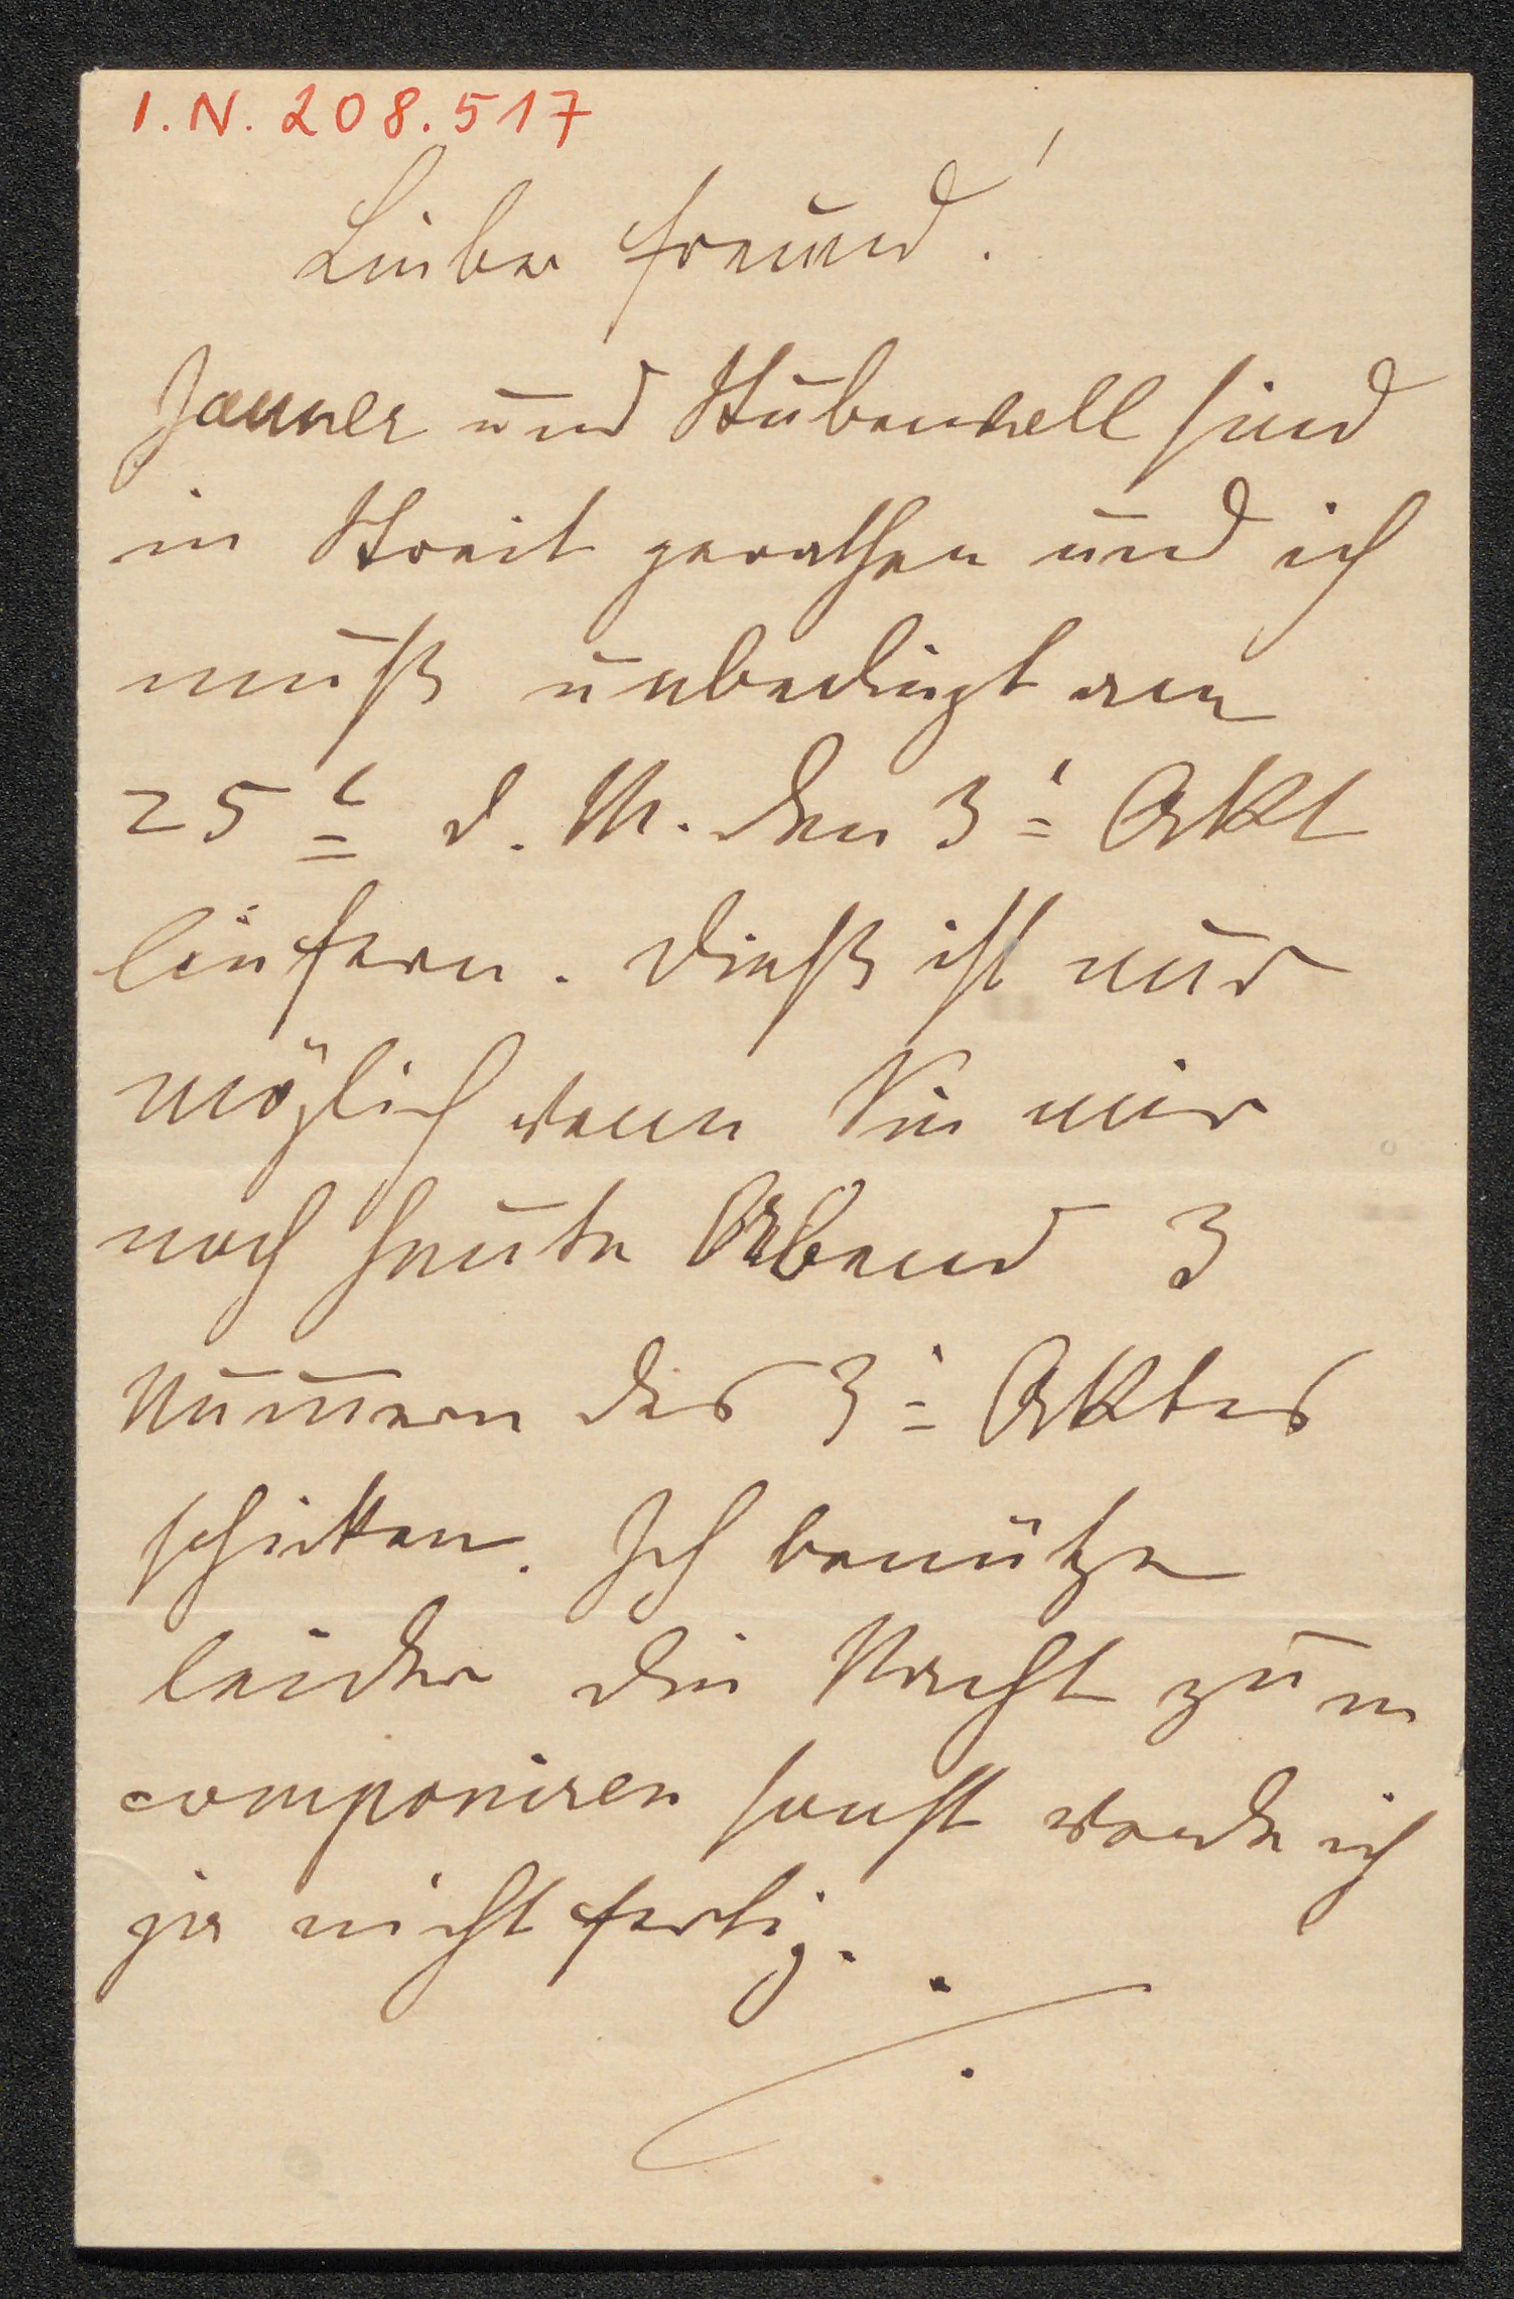 I.N. 208.517
Lieber Freund!
Jauner und Stubenrall sind
in Streit gerathen und ich
muß unbedingt am
25t d. M. den 3. Akt
liefern. Dieß ist nur
möglich wenn Sie mir
noch heute Abend 3
Nummern des 3. Aktes
schicken. Ich benütze
leider die Nacht zum
componiren sonst werde ich
ja nicht fertig.